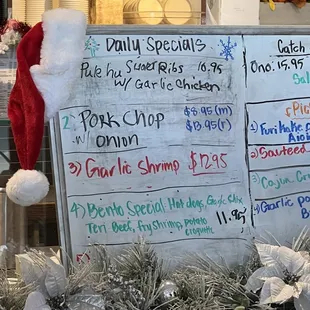 Daily Specials
Pulehu Short Ribs 16.95
w/ Garlic Chicken
2. Pork Chop $8.95 (m)
w onion $13.95 (r)
3) Garlic Shrimp $12.95
4) Bento Special Hot dog, Garlic Chix
Teri Beef, fry Shrimp, potato
croquette 11.95
Catch
Ono: 15.95
1)
Furikake
Aioli
2) Sauteed
3) Cajun
4) Garlic